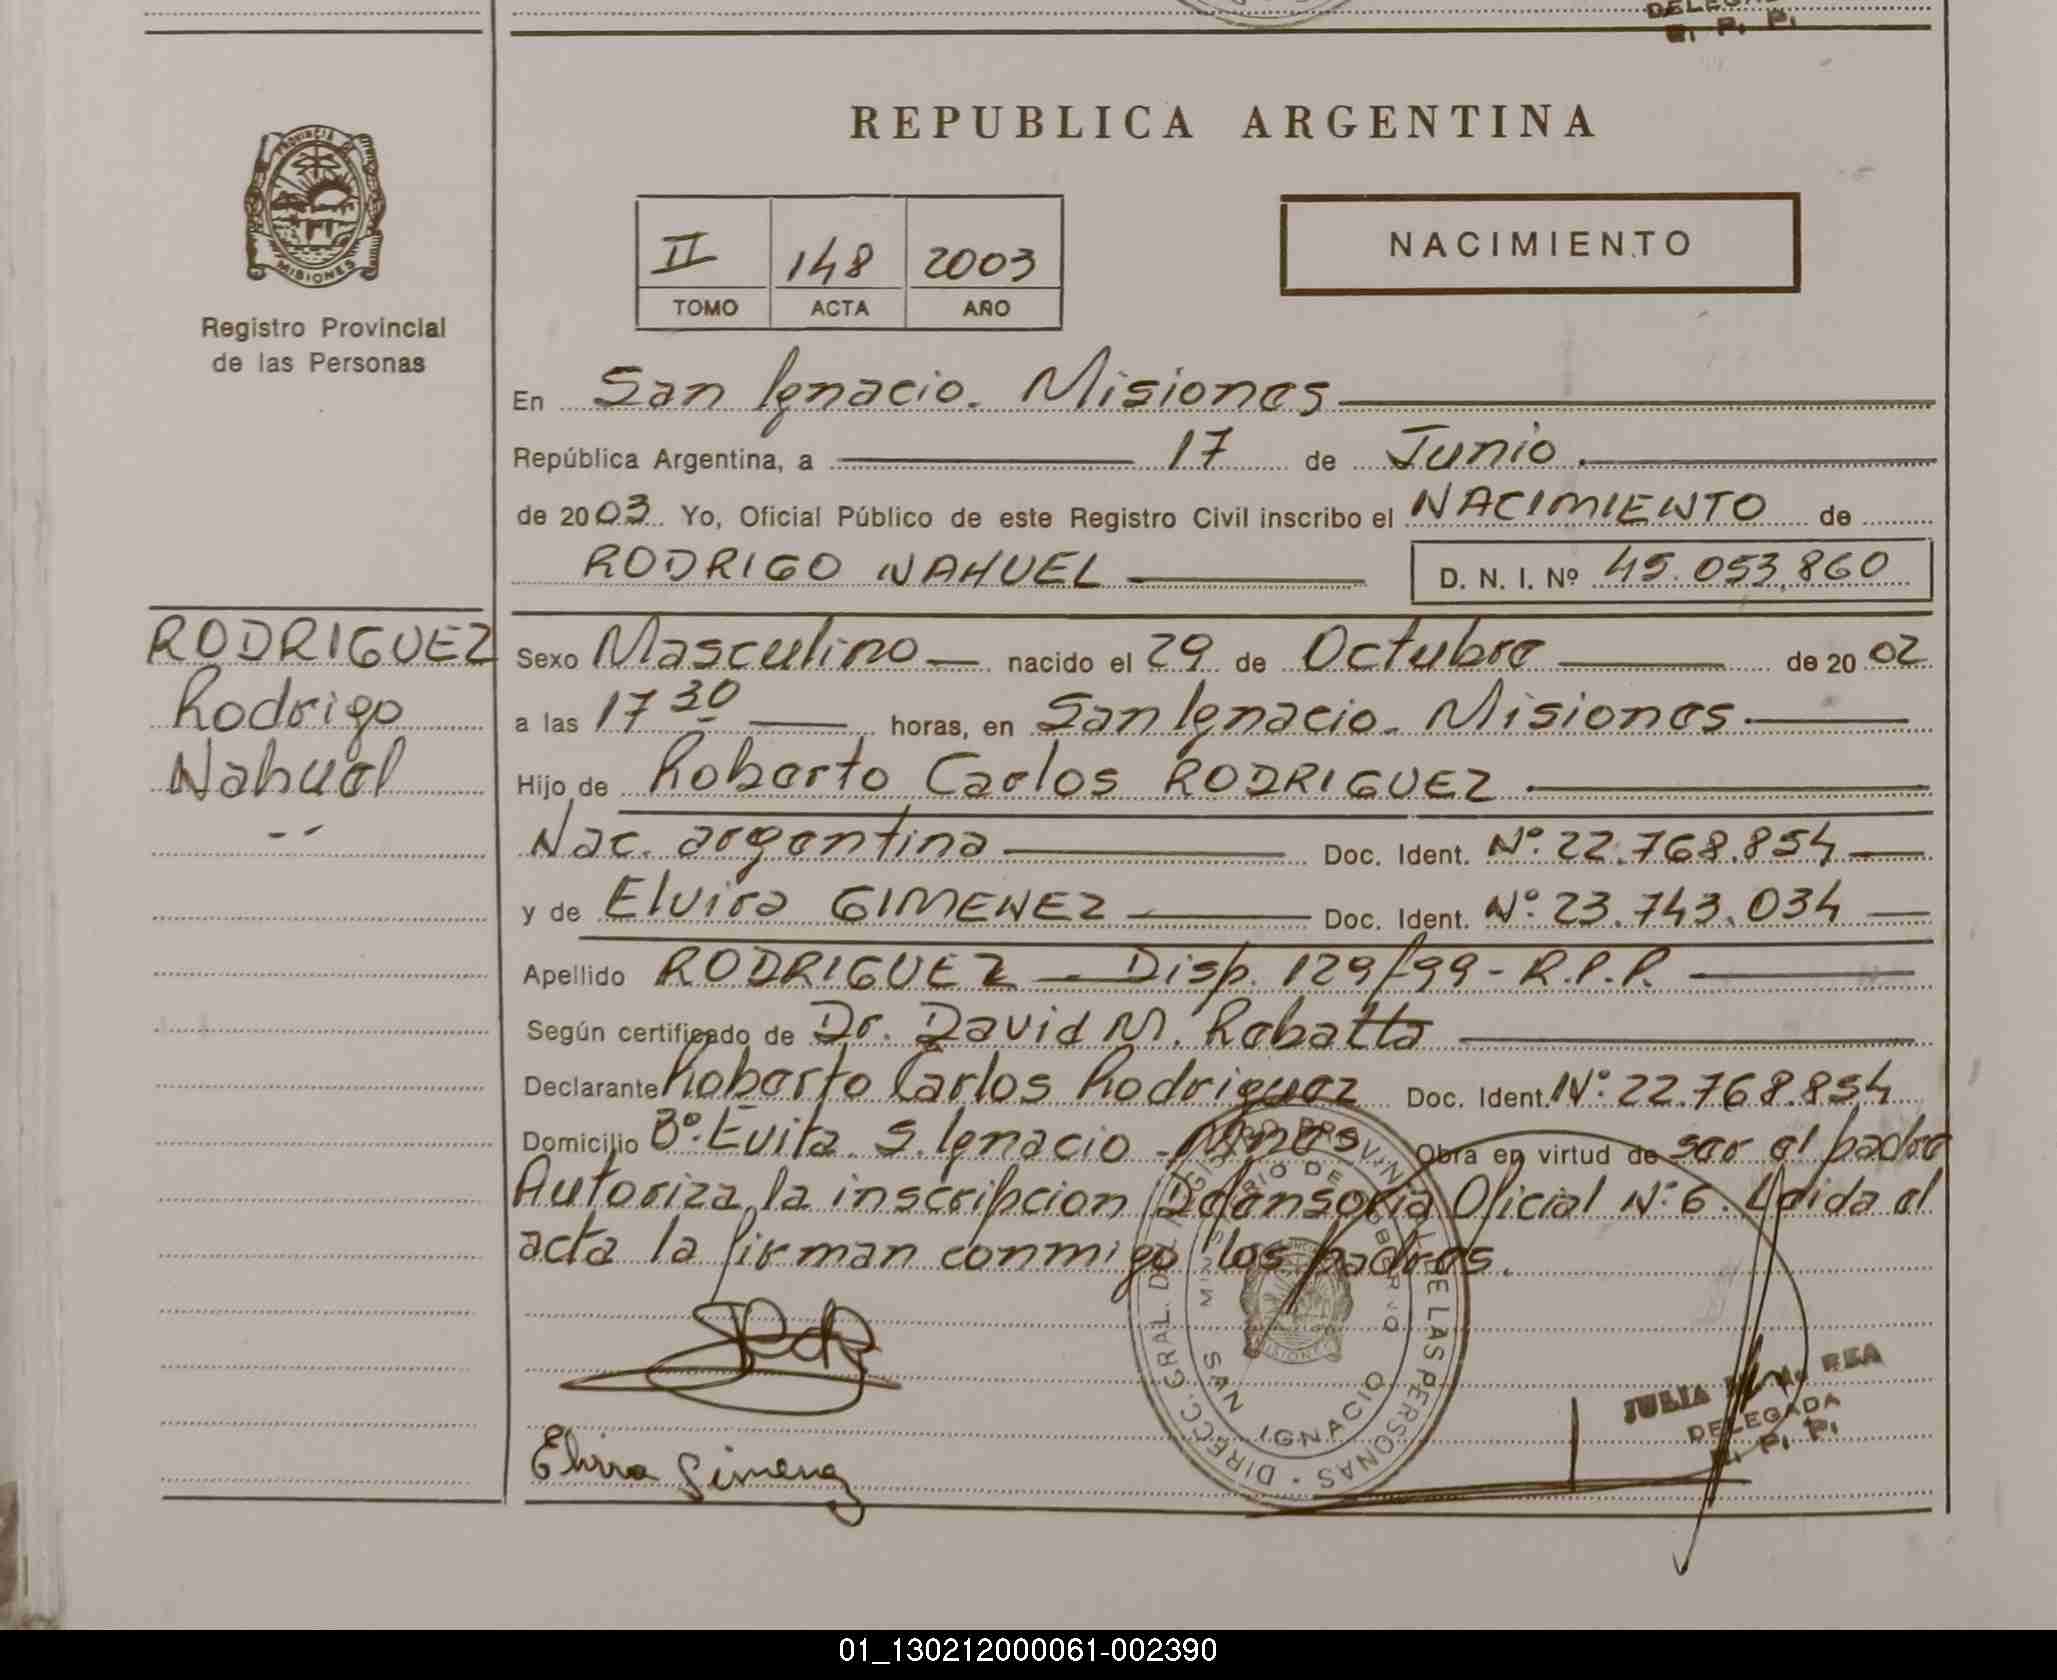 DELEGADA
R. P. P.
REPUBLICA ARGENTINA
PROVINCIA DE
MISIONES
Registro Provincial
de las Personas
II 148 2003
TOMO ACTA AÑO
NACIMIENTO
En San Ignacio. Misiones
República Argentina, a 17 de Junio
de 2003 Yo, Oficial Público de este Registro Civil inscribo el NACIMIENTO de
RODRIGO NAHUEL D. N. I. Nº 45.053.860
RODRIGUEZ
Rodrigo
Nahuel
Sexo Masculino nacido el 29 de Octubre de 2002
a las 17 30 horas, en San Ignacio. Misiones
Hijo de Roberto Carlos RODRIGUEZ
Nac. argentina Doc. Ident. Nº 22.768.854
y de Elvira GIMENEZ Doc. Ident. Nº 23.743.034
Apellido RODRIGUEZ - Disp. 129/99 - R.P.P.
Según certificado de Dr. David M. Rebatta
Declarante Roberto Carlos Rodriguez Doc. Ident. Nº 22.768.854
Domicilio Bº. Evita. S. Ignacio - Mnes Obra en virtud de ser el padre
Autoriza la inscripcion Defensoria Oficial Nº 6. Leida el
acta la firman conmigo los padres.
DIRECC. GRAL. DEL REGISTRO PROVINCIAL DE LAS PERSONAS
MINISTERIO DE GOBIERNO
SAN IGNACIO
MISIONES
JULIA REA
DELEGADA
R. P. P.
Elvira Gimenez
01_130212000061-002390